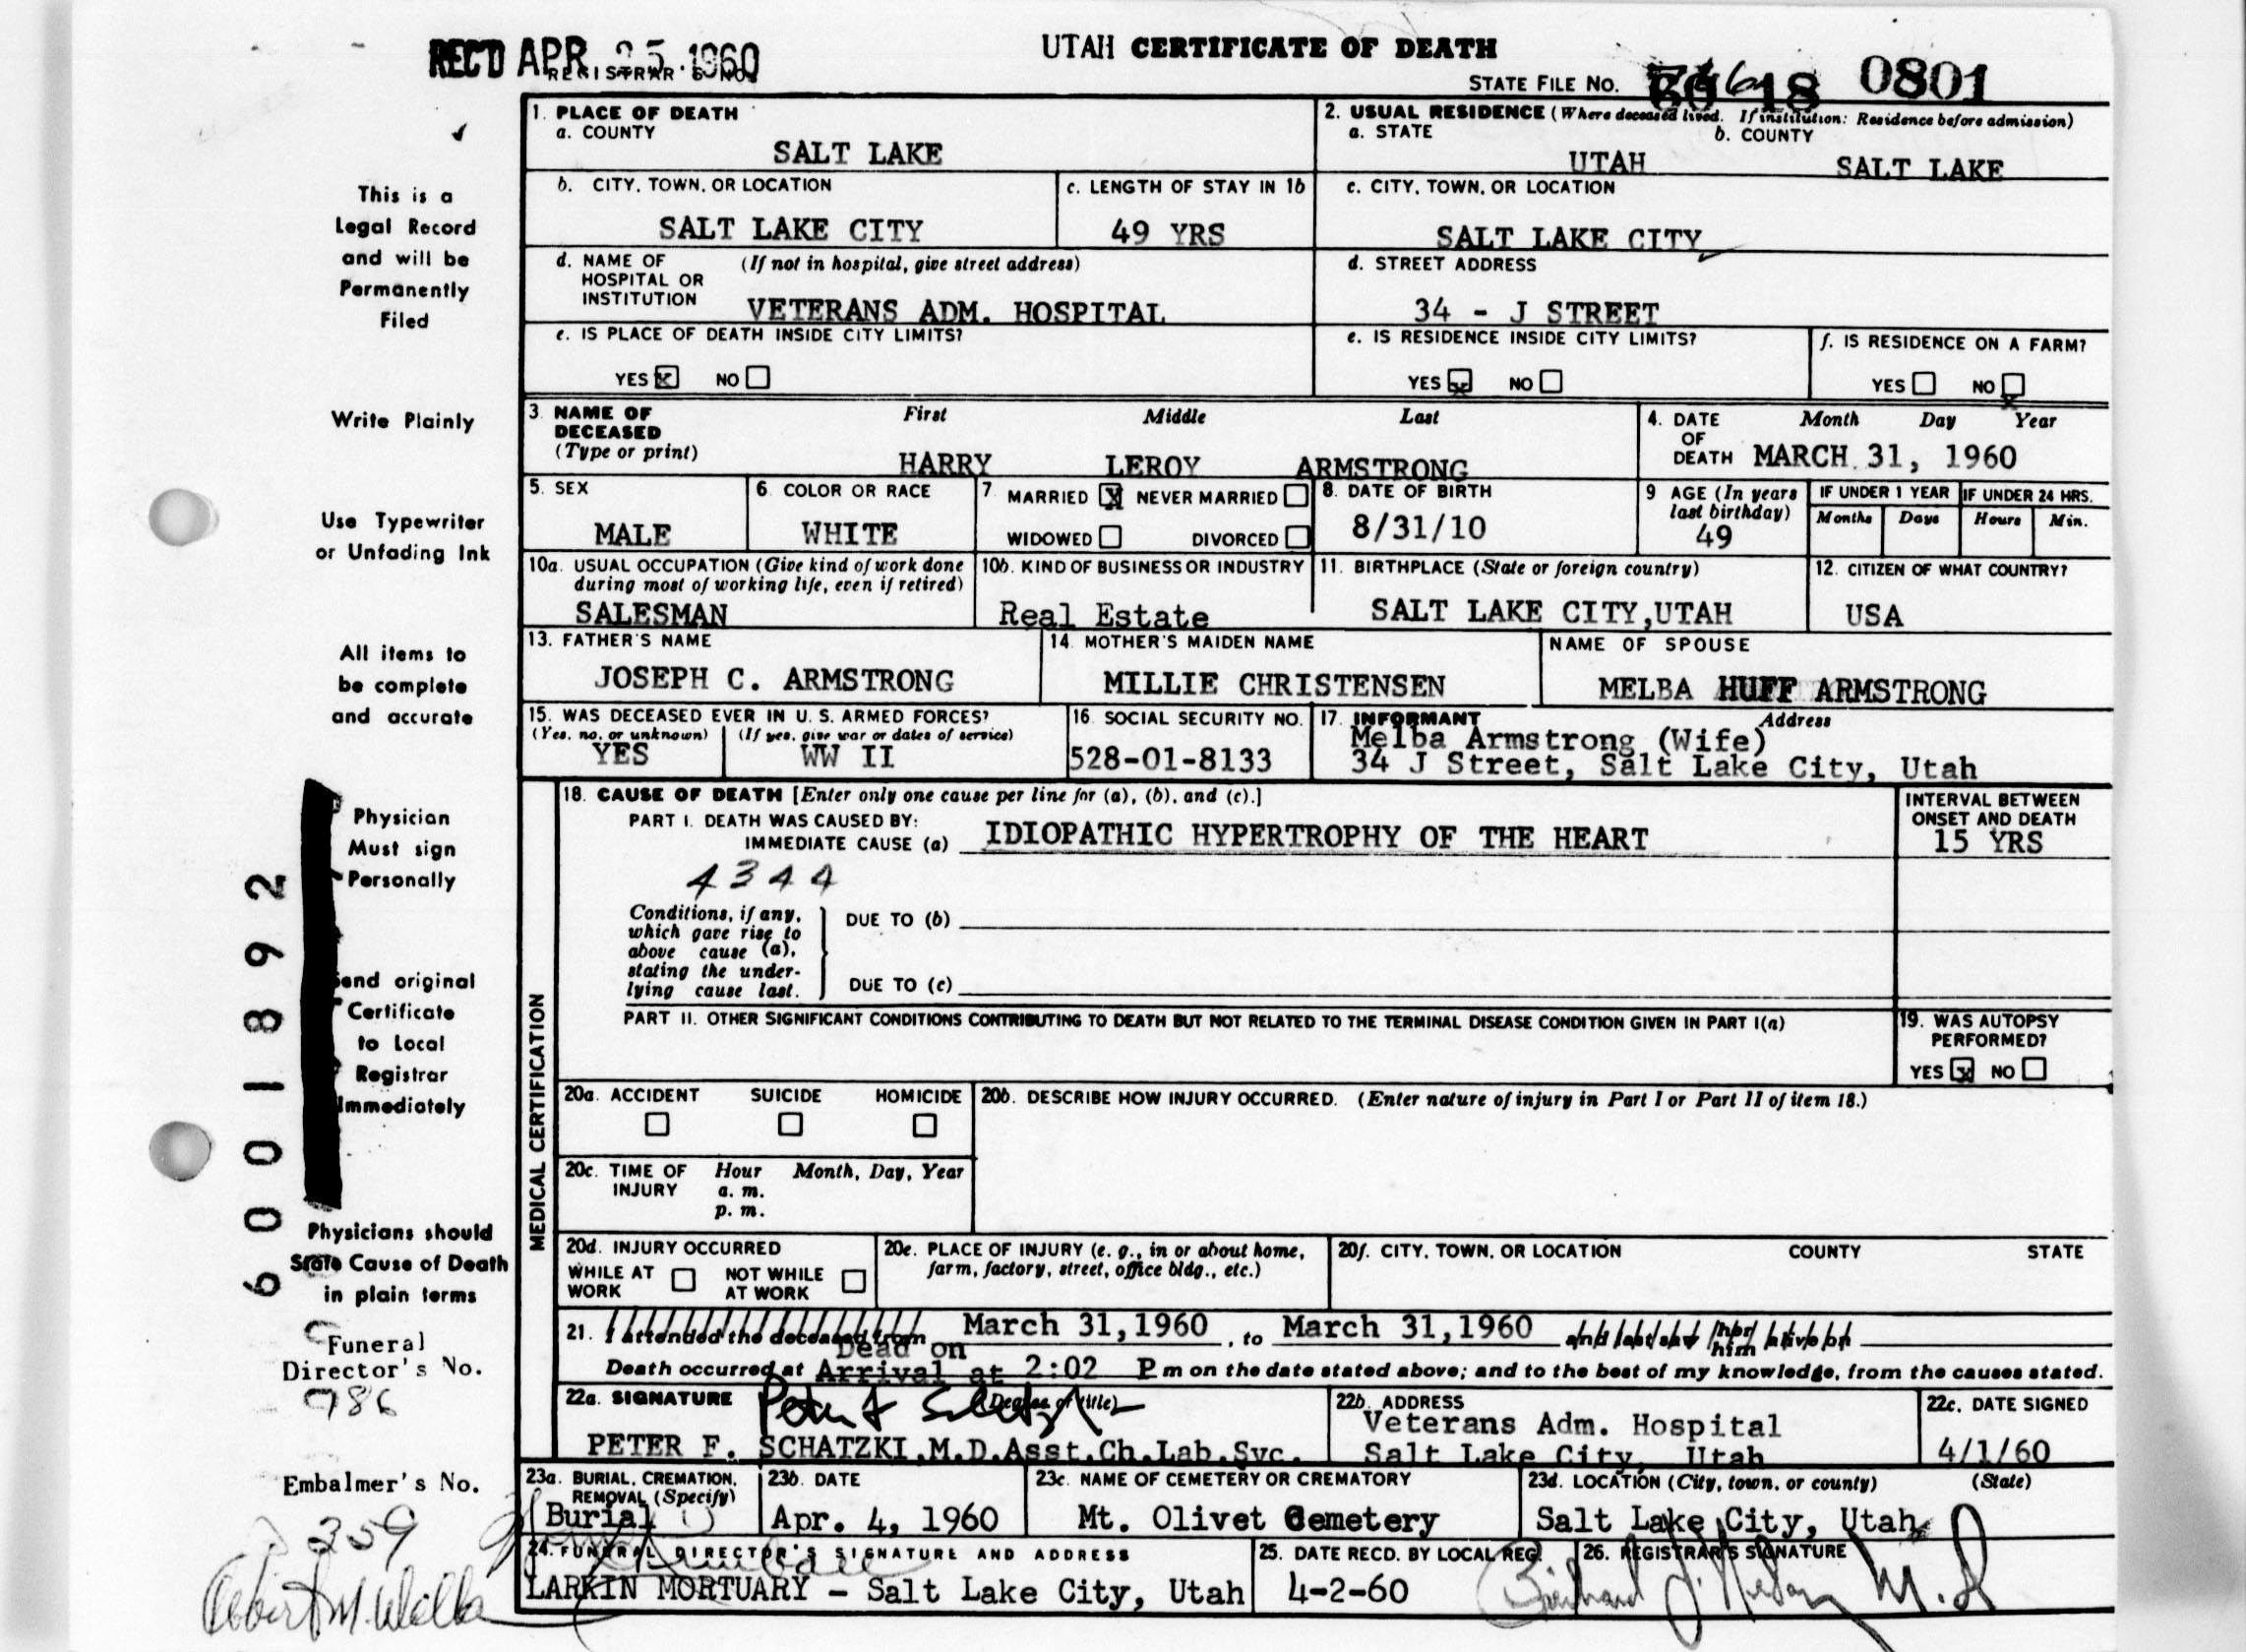 REC'D APR 25 1960
REGISTRAR'S NO.
UTAH CERTIFICATE OF DEATH
STATE FILE NO. 18 0801
1. PLACE OF DEATH
a. COUNTY
SALT LAKE
2. USUAL RESIDENCE (Where deceased lived. If institution: Residence before admission)
a. STATE b. COUNTY
UTAH SALT LAKE
b. CITY, TOWN, OR LOCATION
SALT LAKE CITY
c. LENGTH OF STAY IN 1b
49 YRS
c. CITY, TOWN, OR LOCATION
SALT LAKE CITY
d. NAME OF HOSPITAL OR INSTITUTION (If not in hospital, give street address)
VETERANS ADM. HOSPITAL
d. STREET ADDRESS
34 - J STREET
e. IS PLACE OF DEATH INSIDE CITY LIMITS?
YES X NO
e. IS RESIDENCE INSIDE CITY LIMITS?
YES X NO
f. IS RESIDENCE ON A FARM?
YES NO X
3. NAME OF DECEASED (Type or print)
First Middle Last
HARRY LEROY ARMSTRONG
4. DATE OF DEATH Month Day Year
MARCH 31, 1960
5. SEX
MALE
6. COLOR OR RACE
WHITE
7. MARRIED X NEVER MARRIED
WIDOWED DIVORCED
8. DATE OF BIRTH
8/31/10
9 AGE (In years last birthday)
49
IF UNDER 1 YEAR IF UNDER 24 HRS.
Months Days Hours Min.
10a. USUAL OCCUPATION (Give kind of work done during most of working life, even if retired)
SALESMAN
10b. KIND OF BUSINESS OR INDUSTRY
Real Estate
11. BIRTHPLACE (State or foreign country)
SALT LAKE CITY,UTAH
12. CITIZEN OF WHAT COUNTRY?
USA
13. FATHER'S NAME
JOSEPH C. ARMSTRONG
14. MOTHER'S MAIDEN NAME
MILLIE CHRISTENSEN
NAME OF SPOUSE
MELBA HUFF ARMSTRONG
15. WAS DECEASED EVER IN U. S. ARMED FORCES?
(Yes, no, or unknown) (If yes, give war or dates of service)
YES WW II
16. SOCIAL SECURITY NO.
528-01-8133
17. INFORMANT Address
Melba Armstrong (Wife)
34 J Street, Salt Lake City, Utah
MEDICAL CERTIFICATION
18. CAUSE OF DEATH [Enter only one cause per line for (a), (b), and (c).]
PART I. DEATH WAS CAUSED BY:
IMMEDIATE CAUSE (a) IDIOPATHIC HYPERTROPHY OF THE HEART
INTERVAL BETWEEN ONSET AND DEATH
15 YRS
4344
Conditions, if any, which gave rise to above cause (a), stating the underlying cause last.
DUE TO (b)
DUE TO (c)
PART II. OTHER SIGNIFICANT CONDITIONS CONTRIBUTING TO DEATH BUT NOT RELATED TO THE TERMINAL DISEASE CONDITION GIVEN IN PART I(a)
19. WAS AUTOPSY PERFORMED?
YES X NO
20a. ACCIDENT SUICIDE HOMICIDE
20b. DESCRIBE HOW INJURY OCCURRED. (Enter nature of injury in Part I or Part II of item 18.)
20c. TIME OF INJURY Hour Month, Day, Year
a. m.
p. m.
20d. INJURY OCCURRED
WHILE AT WORK NOT WHILE AT WORK
20e. PLACE OF INJURY (e. g., in or about home, farm, factory, street, office bldg., etc.)
20f. CITY, TOWN, OR LOCATION COUNTY STATE
21. I attended the deceased from March 31,1960, to March 31,1960 and last saw her him alive on
Dead on
Death occurred at Arrival at 2:02 P m on the date stated above; and to the best of my knowledge, from the causes stated.
22a. SIGNATURE (Degree or title)
PETER F. SCHATZKI,M.D.Asst.Ch.Lab.Svc.
22b. ADDRESS
Veterans Adm. Hospital
Salt Lake City, Utah
22c. DATE SIGNED
4/1/60
23a. BURIAL, CREMATION, REMOVAL (Specify)
Burial
23b. DATE
Apr. 4, 1960
23c. NAME OF CEMETERY OR CREMATORY
Mt. Olivet Cemetery
23d. LOCATION (City, town, or county) (State)
Salt Lake City, Utah
24. FUNERAL DIRECTOR'S SIGNATURE AND ADDRESS
LARKIN MORTUARY - Salt Lake City, Utah
25. DATE RECD. BY LOCAL REG.
4-2-60
26. REGISTRAR'S SIGNATURE
This is a
Legal Record
and will be
Permanently
Filed
Write Plainly
Use Typewriter
or Unfading Ink
All items to
be complete
and accurate
Physician
Must sign
Personally
Send original
Certificate
to Local
Registrar
Immediately
Physicians should
State Cause of Death
in plain terms
Funeral
Director's No.
986
Embalmer's No.
359
6001892